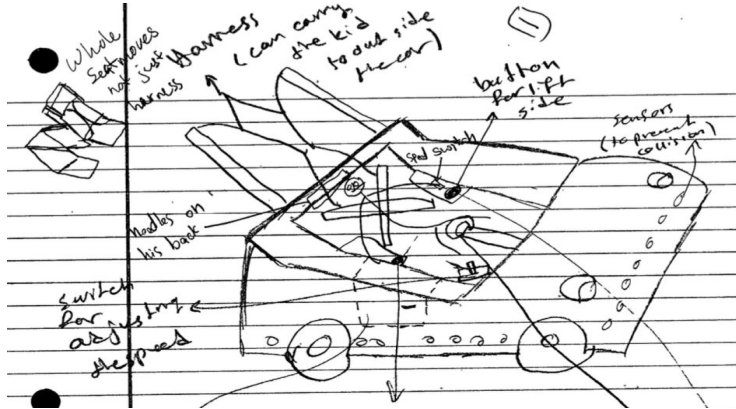 Whole
Seat moves
not just
harness
Harness
(can carry
the kid
to out side
the car)
(1)
button
for lift
side
sensors
(to prevent
collision)
switch
needles on
his back
switch
for
adjusting
the speed